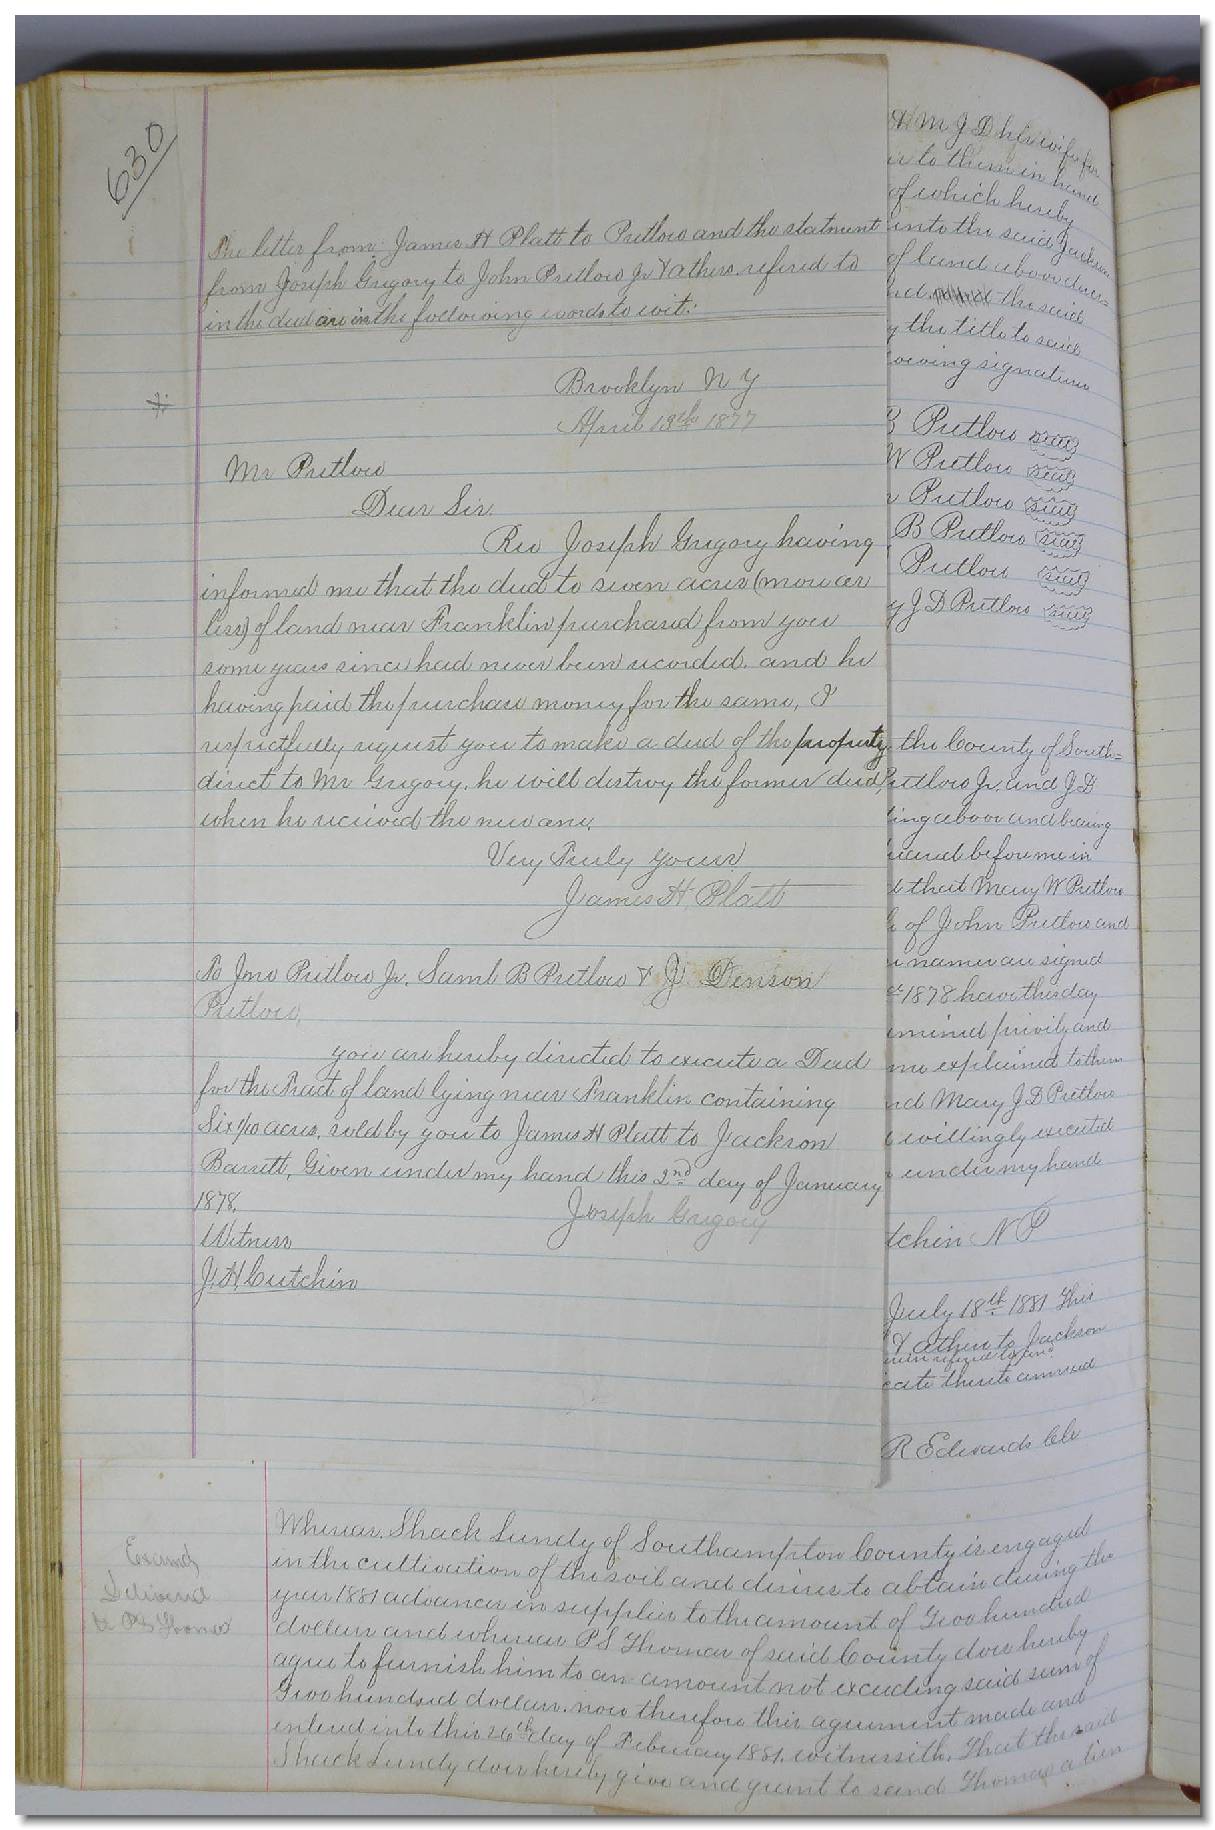 630
The letter from James H Platt to Pretlow and the statment
from Joseph Gregory to John Pretlow Jr & athers refered to
in the deed are in the following words to wit:
Brooklyn N Y
April 13th 1877
Mr Pretlow
Dear Sir.
Rev Joseph Gregory having
informed me that the deed to seven acres (more or
less) of land near Franklin purchased from you
some years since had never been recorded. and he
having paid the purchase money for the same, I
respectfully request you to make a deed of the property
direct to Mr Gregory. he will destroy the former deed,
when he recieved the new one.
Very Truly yours
James H. Platt
To Jno Pretlow Jr. Saml B Pretlow & J. Denson
Pretlow,
you are hereby directed to execute a Deed
for the Tract of land lying near Franklin containing
Six 1/10 acres, sold by you to James H Platt to Jackson
Barrett, Given under my hand this 2nd day of January
1878.
Joseph Gregory
Witness
J. H. Cutchin
M J D his wife for
to them in hand
of which hereby
unto the said Jackson
of land above
the said
the title to said
owing signatures
B Pretlow seal
W Pretlow seal
Pretlow seal
B Pretlow seal
Pretlow seal
y J D Pretlow seal
the County of South=
Pretlow Jr. and J D
ting above and bearing
peared before me in
that Mary W Pretlow
of John Pretlow and
names are signed
1878 have this day
amined privily and
me explained to them
nd Mary J D Pretlow
willingly executed
under my hand
tchin N P
July 18th 1881 This
& athers to Jackson
cate thereto annexed
R Edwards Clk
Examd
Delivered
to P S Thomas
Whereas. Shack Lundy of Southampton County is engaged
in the cultivation of the soil and desires to obtain during the
year 1881 advances in supplies to the amount of Two hundred
dollars and whereas P S Thomas of said County does hereby
agree to furnish him to an amount not exceeding said sum of
Two hundred dollars. now therefore this agreement made and
entered into this 26th day of February 1881. witnesseth. That the said
Shack Lundy does hereby give and grant to said Thomas a lien